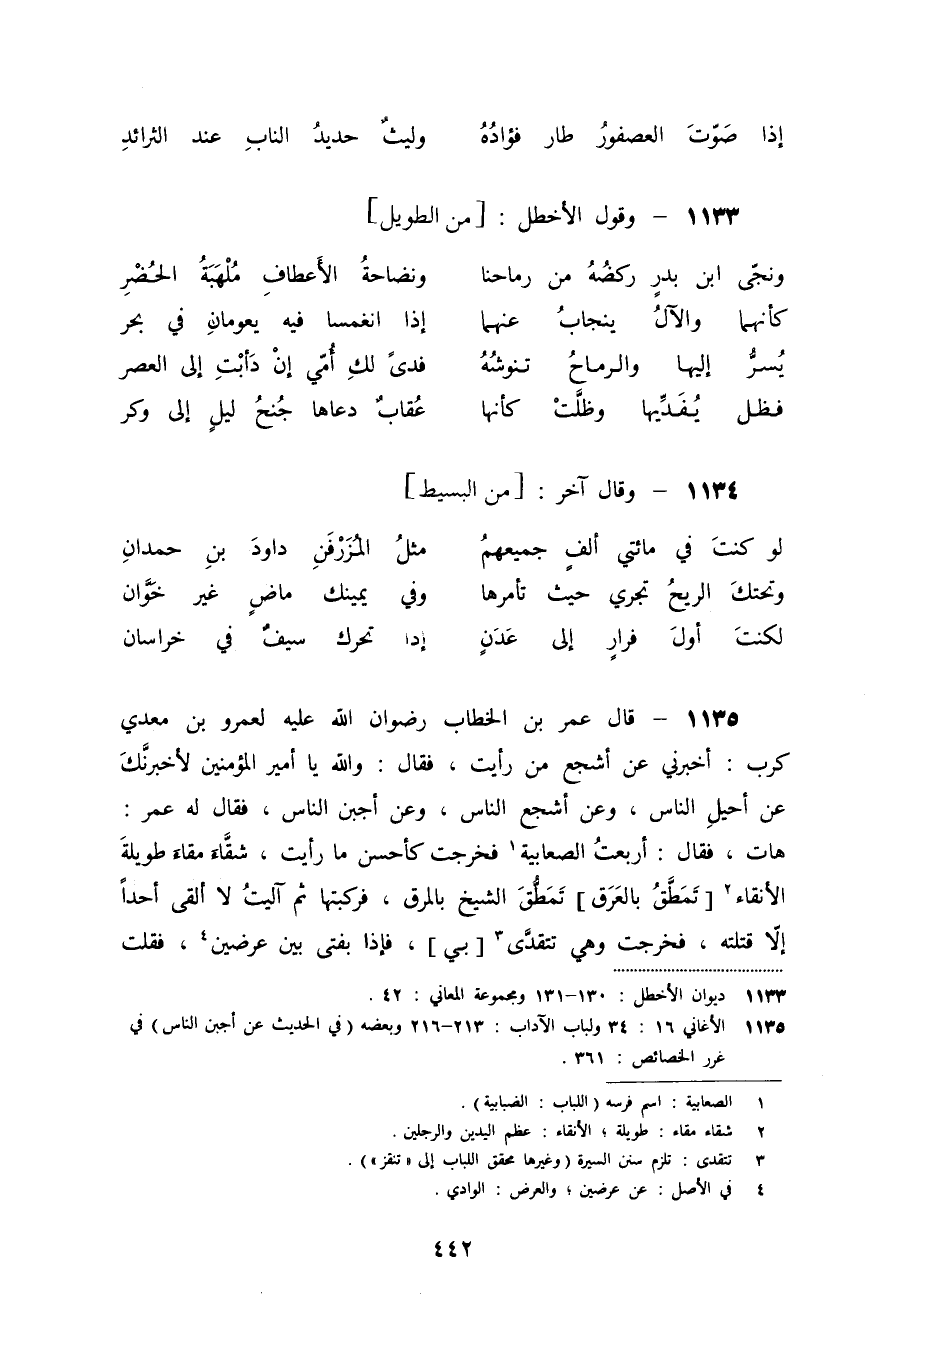 إذا صَوّتَ العصفورُ طار فؤادُهُ وليثٌ حديدُ النابِ عند الثرائدِ
١١٣٣ – وقول الأخطل : [ من الطويل ]
ونجّى ابن بدرٍ ركضُهُ من رماحنا ونضاحةُ الأَعطافِ مُلْهَبَةُ الحُضْرِ
كأنهما والآلُ ينجابُ عنهما إذا انغمسا فيه يعومانِ في بحر
يُسرُّ إليها والرماحُ تنوشُهُ فدىً لكِ أُمّي إنْ دَأبْتِ إلى العصر
فظل يُفَدِّيها وظلَّتْ كأنها عُقابٌ دعاها جُنحُ ليلٍ إلى وكر
١١٣٤ – وقال آخر : [ من البسيط ]
لو كنتَ في مائتي ألفٍ جميعهمُ مثلُ المُزَرْفَنِ داودَ بنِ حمدانِ
وتحتكَ الريحُ تجري حيث تأمرها وفي يمينك ماضٍ غير خَوَّان
لكنتَ أولَ فرارٍ إلى عَدَنٍ إذا تحرك سيفٌ في خراسان
١١٣٥ – قال عمر بن الخطاب رضوان الله عليه لعمرو بن معدي
كرب : أخبرني عن أشجع من رأيت ، فقال : والله يا أمير المؤمنين لأخبرنَّكَ
عن أحيلِ الناس ، وعن أشجع الناس ، وعن أجبن الناس ، فقال له عمر :
هات ، فقال : أربعتُ الصعابية١ فخرجت كأحسن ما رأيت ، شقَّاءَ مقاءَ طويلةَ
الأنقاء٢ [ تَمَطَّقُ بالعَرَق ] تَمَطُّقَ الشيخ بالمرق ، فركبتها ثم آليتُ لا ألقى أحداً
إلّا قتلته ، فخرجت وهي تتقدَّى٣ [ بي ] ، فإذا بفتى بين عرضين٤ ، فقلت
١١٣٣ ديوان الأخطل : ١٣٠–١٣١ ومجموعة المعاني : ٤٢ .
١١٣٥ الأغاني ١٦ : ٣٤ ولباب الآداب : ٢١٣–٢١٦ وبعضه ( في الحديث عن أجبن الناس ) في
غرر الخصائص : ٣٦١ .
١ الصعابية : اسم فرسه ( اللباب : الضبابية ) .
٢ شقاء مقاء : طويلة ؛ الأنقاء : عظم اليدين والرجلين .
٣ تتقدى : تلزم سنن السيرة ( وغيرها محقق اللباب إلى « تنقز » ) .
٤ في الأصل : عن عرضين ؛ والعرض : الوادي .
٤٤٢